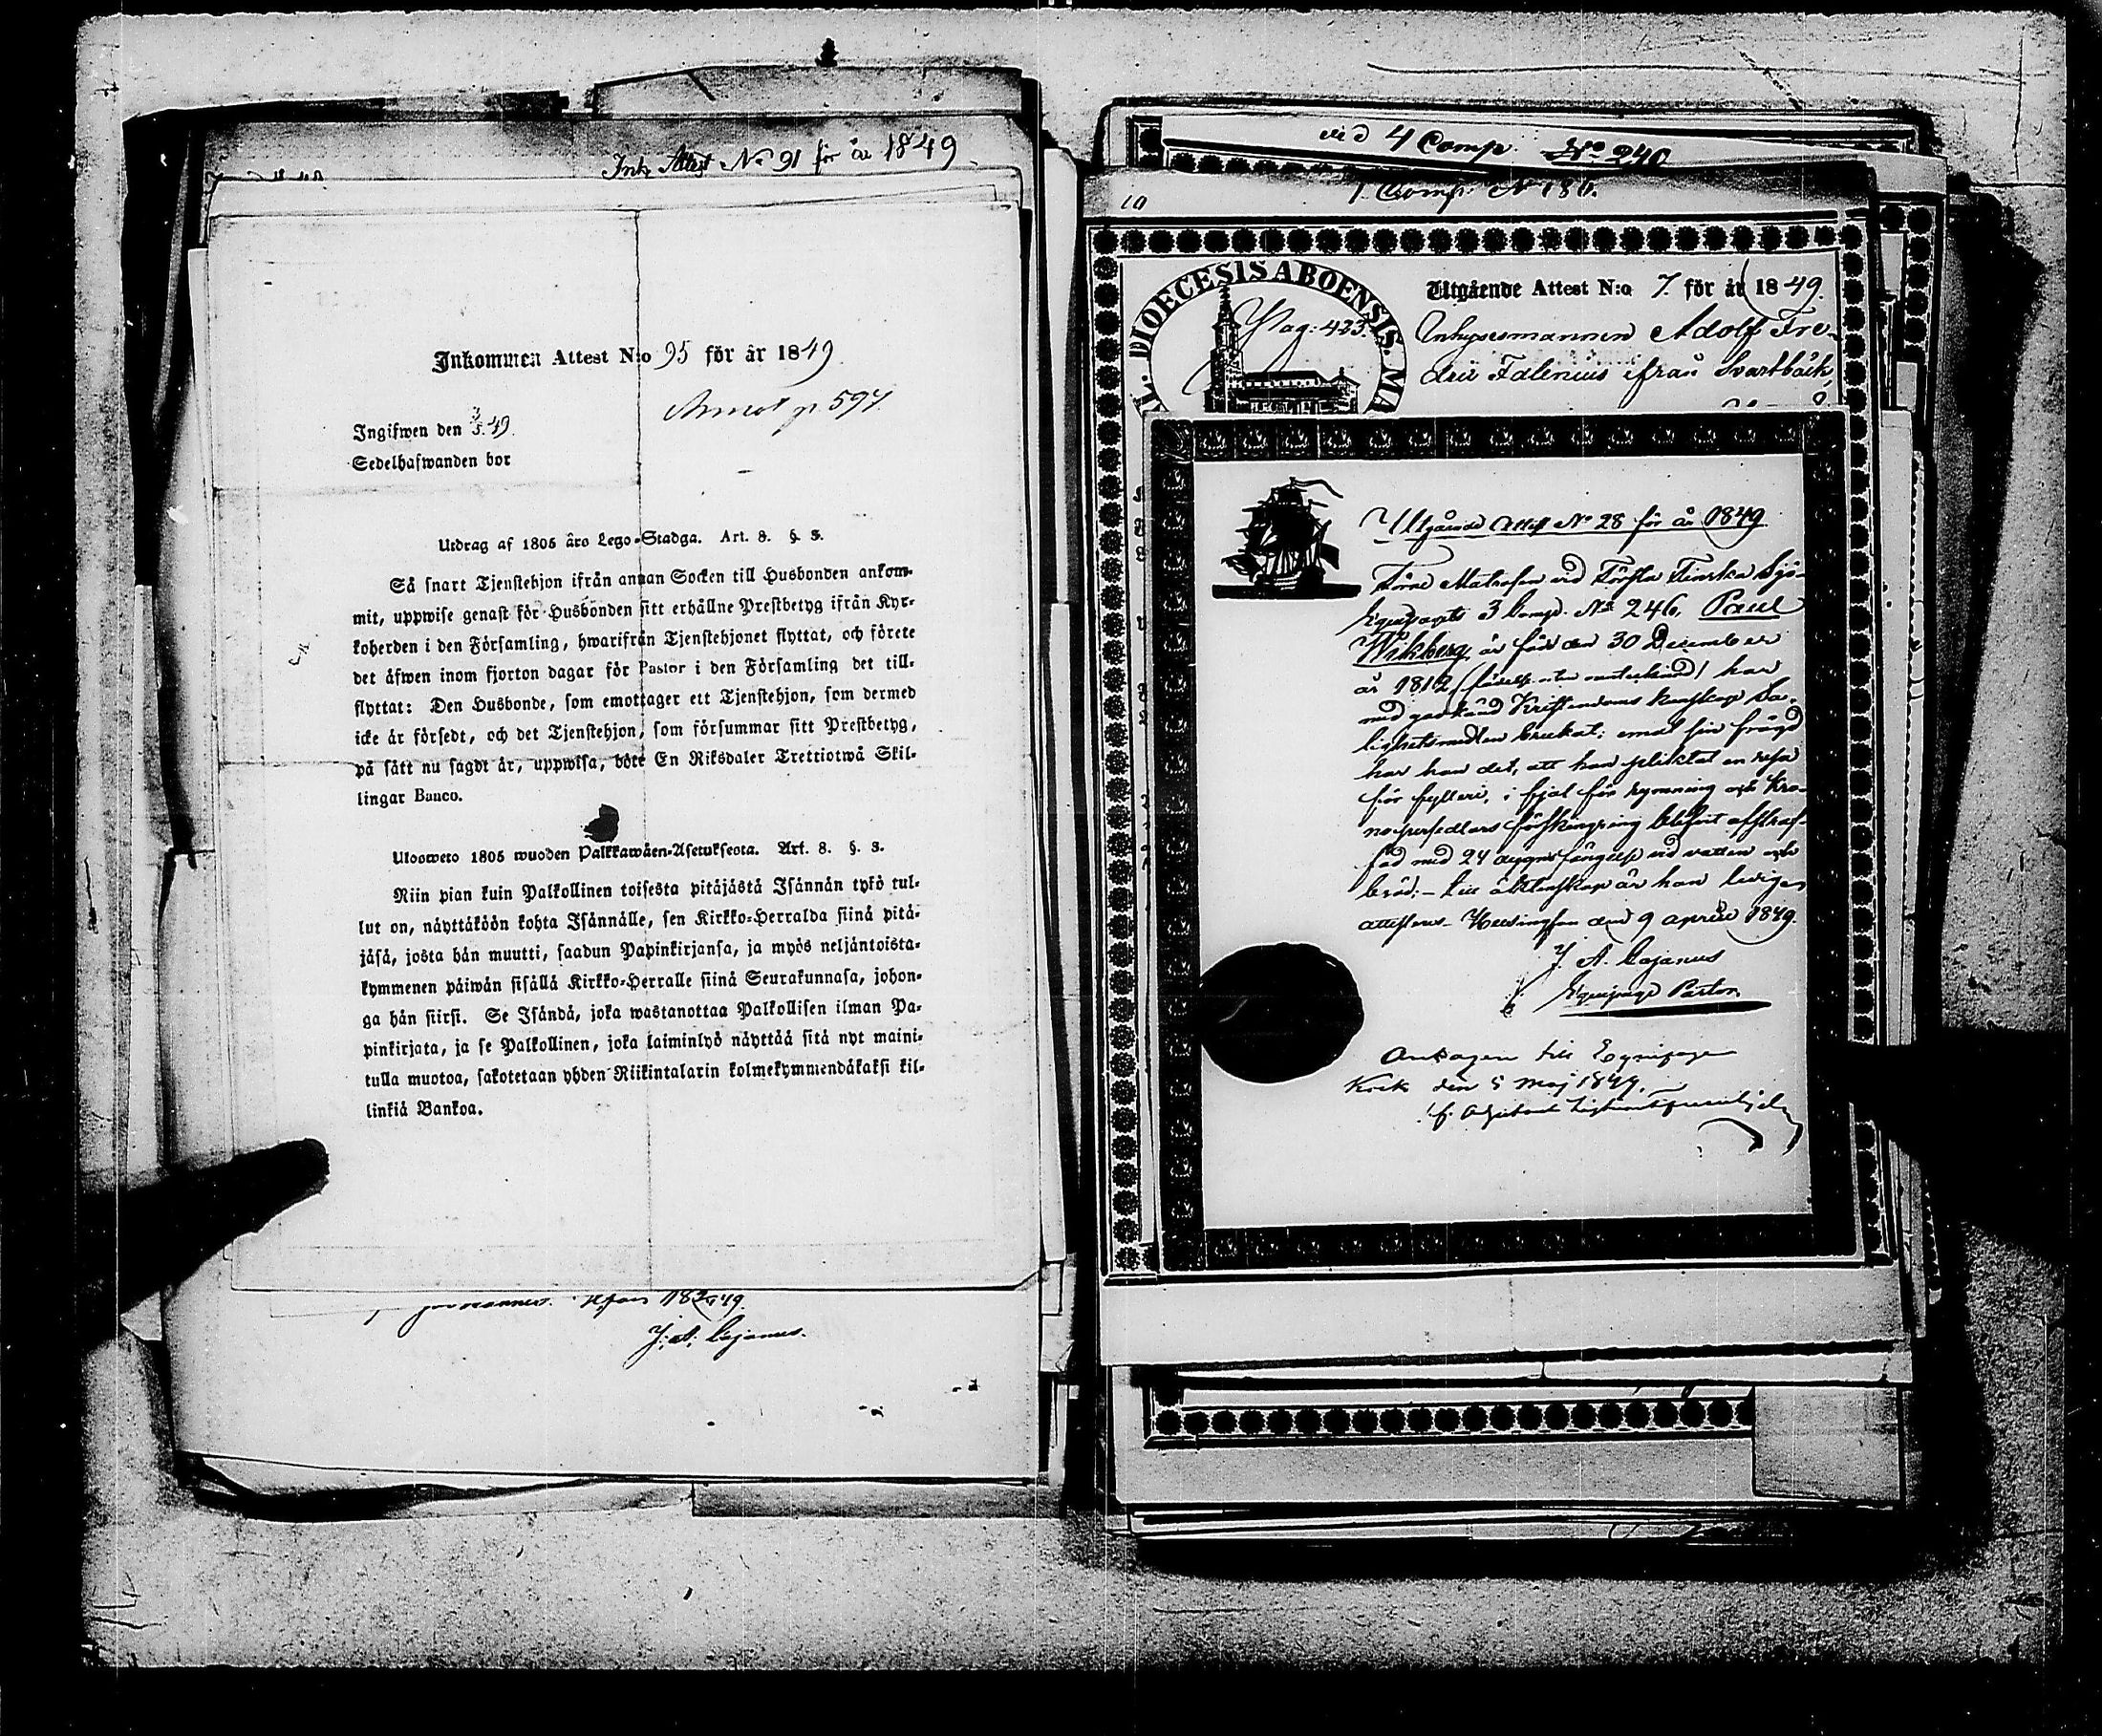 Ink. Attest No 91 för år 1849
Inkommen Attest N:o 95 för år 1849
Annot p. 597.
Ingifwen den 3/5 49.
Sedelhafwanden bor
Utdrag af 1805 års Lego-Stadga. Art. 8. §. 3.
Så snart Tjenstehjon ifrån annan Socken till Husbonden ankom-
mit, uppwise genast för Husbonden sitt erhållne Prestbetyg ifrån Kyr-
koherden i den Församling, hwarifrån Tjenstehjonet flyttat, och förete
det äfwen inom fjorton dagar för Pastor i den Församling det till-
flyttat: Den Husbonde, som emottager ett Tjenstehjon, som dermed
icke är försedt, och det Tjenstehjon, som försummar sitt Prestbetyg,
på sätt nu sagdt är, uppwisa, böte En Riksdaler Trettiotwå Skil-
lingar Banco.
Ulosweto 1805 wuoden Palkkawäen-Asetuksesta. Art. 8. §. 3.
Niin pian kuin Palkollinen toisesta pitäjästä Isännän tykö tul-
lut on, näyttäköön kohta Isännälle, sen Kirkko-Herralda siinä pitä-
jäsä, josta hän muutti, saadun Papinkirjansa, ja myös neljäntoista-
kymmenen päiwän sisällä Kirkko-Herralle siinä Seurakunnasa, johon-
ga hän siirsi. Se Isändä, joka wastanottaa Palkollisen ilman Pa-
pinkirjata, ja se Palkollinen, joka laiminlyö näyttää sitä nyt maini-
tulla muotoa, sakotetaan yhden Riikintalarin kolmekymmendäkaksi kil-
linkiä Bankoa.
J. A. Cajanus.
vid 4 Comp. No 240
1 Comp. No 180.
10
DIOECESIS ABOENSIS. MA
Pag: 423.
Utgående Attest N:o 7. för år 1849.
Inhysesmannen Adolf Fre-
dric Falenius ifrån Svartbäck,
Utgående Attest No 28 för år 1849
Förre Matrosen vid Första Finska Sjö-
Equipagets 3 Comp. No 246, Paul
Wikberg är född den 30 December
år 1812 (födelseorten obekand) har
med godkänd Kristendoms kunskap Sa-
lighetsmedlen brukat; emot sin frägd
har han det, att han pliktat en resa
för fylleri, i fjol för rymning och Kro-
nopersedlars förskingring blifvit afstraf-
fad med 24 dygns fängelse vid vatten och
bröd; – till äktenskap är han ledig,
attesteras – Helsingfors den 9 April 1849.
J. A. Cajanus
Equipage Pastor
Antagen till Equipage
Kock den 5 Maj 1849.